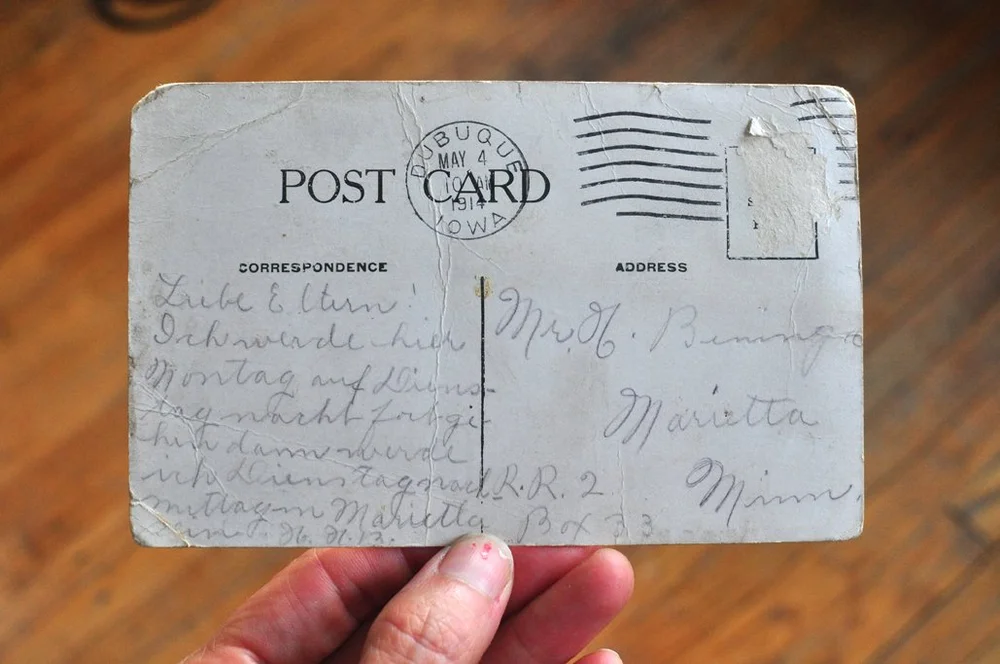 POST CARD
DUBUQUE
MAY 4
10 AM
1914
IOWA
CORRESPONDENCE
ADDRESS
Leibe Eltern!
Ich werde hier
Montag auf Diens-
tag nacht fortge-
hen dann werde
ich Dienstag nach-
mittag in Marietta
H. H. B.
Mr. H. Beninga
Marietta
Minn.
R.R. 2
Box 33